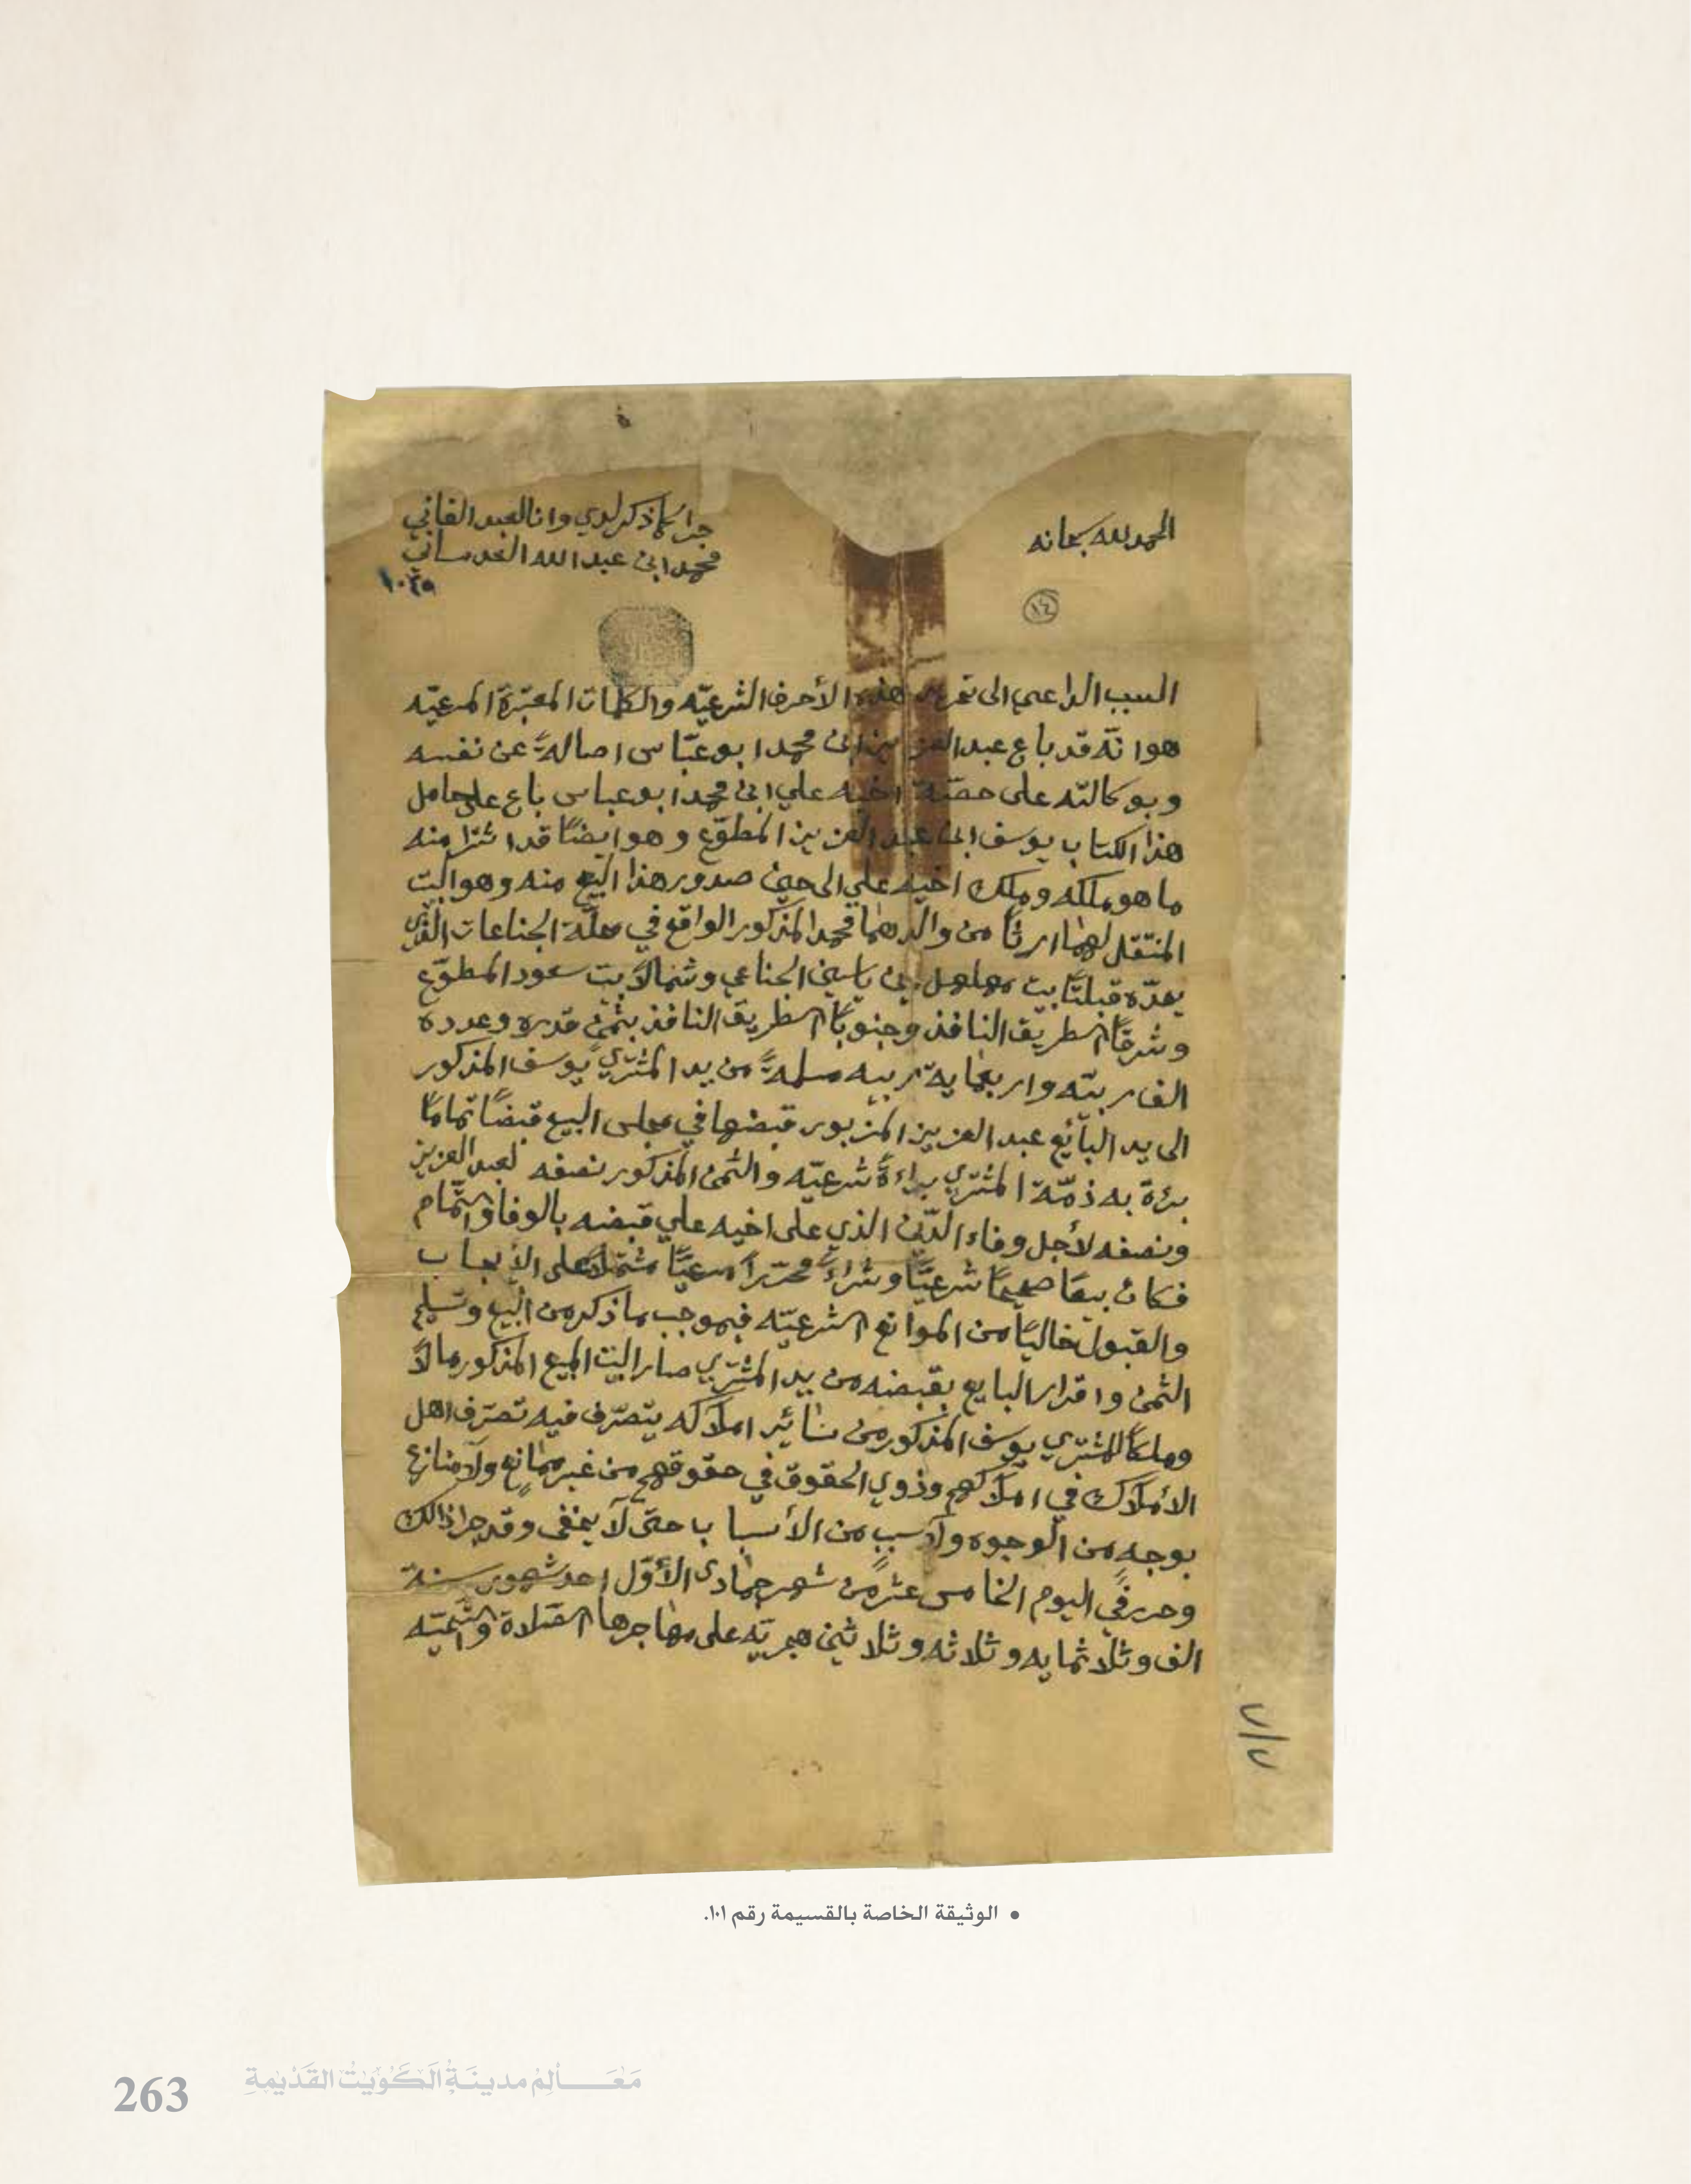 الحمد لله سبحانه
جرا كما ذكر لدي وانا العبد الفاني
محمد ابن عبدالله العدساني
١٤
السبب الداعي الى تحرير هذه الأحرف الشرعيّه والكلمات المعتبرة المرعيّه
هو انّه قد باع عبدالعزيز ابن محمد ابو عبّاس اصالةً عن نفسه
وبوكالته على حصّة اخيه علي ابن محمد ابو عباس باع على حامل
هذا الكتاب يوسف ابن عبد العزيز المطوّع وهو ايضًا قد اشترا منه
ما هو ملكه وملك اخيه علي الى حين صدور هذا البيع منه وهو البيت
المنتقل لهما ارثًا من والدهما محمد المذكور الواقع في محلّة الجناعات الذي
يحدّه قبلتًا بيت مهلهل بن ياسين الجناعي وشمالاً بيت سعود المطوّع
وشرقًا الطريق النافذ وجنوبًا الطريق النافذ بثمنٍ قدره وعدده
الف ربيّه واربعمايه ربيه مسلمةً من يد المشتري يوسف المذكور
الى يد البائع عبد العزيز المزبور قبضها في مجلس البيع قبضًا تمامًا
برئة به ذمّة المشتري براءةً شرعيّه والثمن المذكور نصفه لعبد العزيز
ونصفه لأجل وفاء الدّين الذي على اخيه علي قبضه بالوفا والتّمام
فكان بيعًا صحيحًا شرعيًّا وشراءً محرّرًا مرعيًّا مشتملاً على الأيجاب
والقبول خاليًا من الموانع الشرعيّه فبموجب ما ذكر من البيع وتسليم
الثمن واقرار البايع بقبضه من يد المشتري صار البيت المبيع المذكور مالاً
وملكًا للمشتري يوسف المذكور من سائر املاكه يتصرّف فيه تصرّف اهل
الأملاك في املاكهم وذوي الحقوق في حقوقهم من غير ممانعٍ ولا منازع
بوجه من الوجوه ولا سببٍ من الأسباب حتى لا يخفى وقد جرا ذالك
وحرر في اليوم الخامس عشر من شهر جمادى الأوّل احد شهور سنة
الف وثلاثمايه وثلاثه وثلاثين هجريّه على مهاجرها الصّلاة والتّحيّه
٧/٧
• الوثيقة الخاصة بالقسيمة رقم ١٠١.
263 مَعَالِمْ مدينَةُ الكُويْتُ القَدْيْمةِ